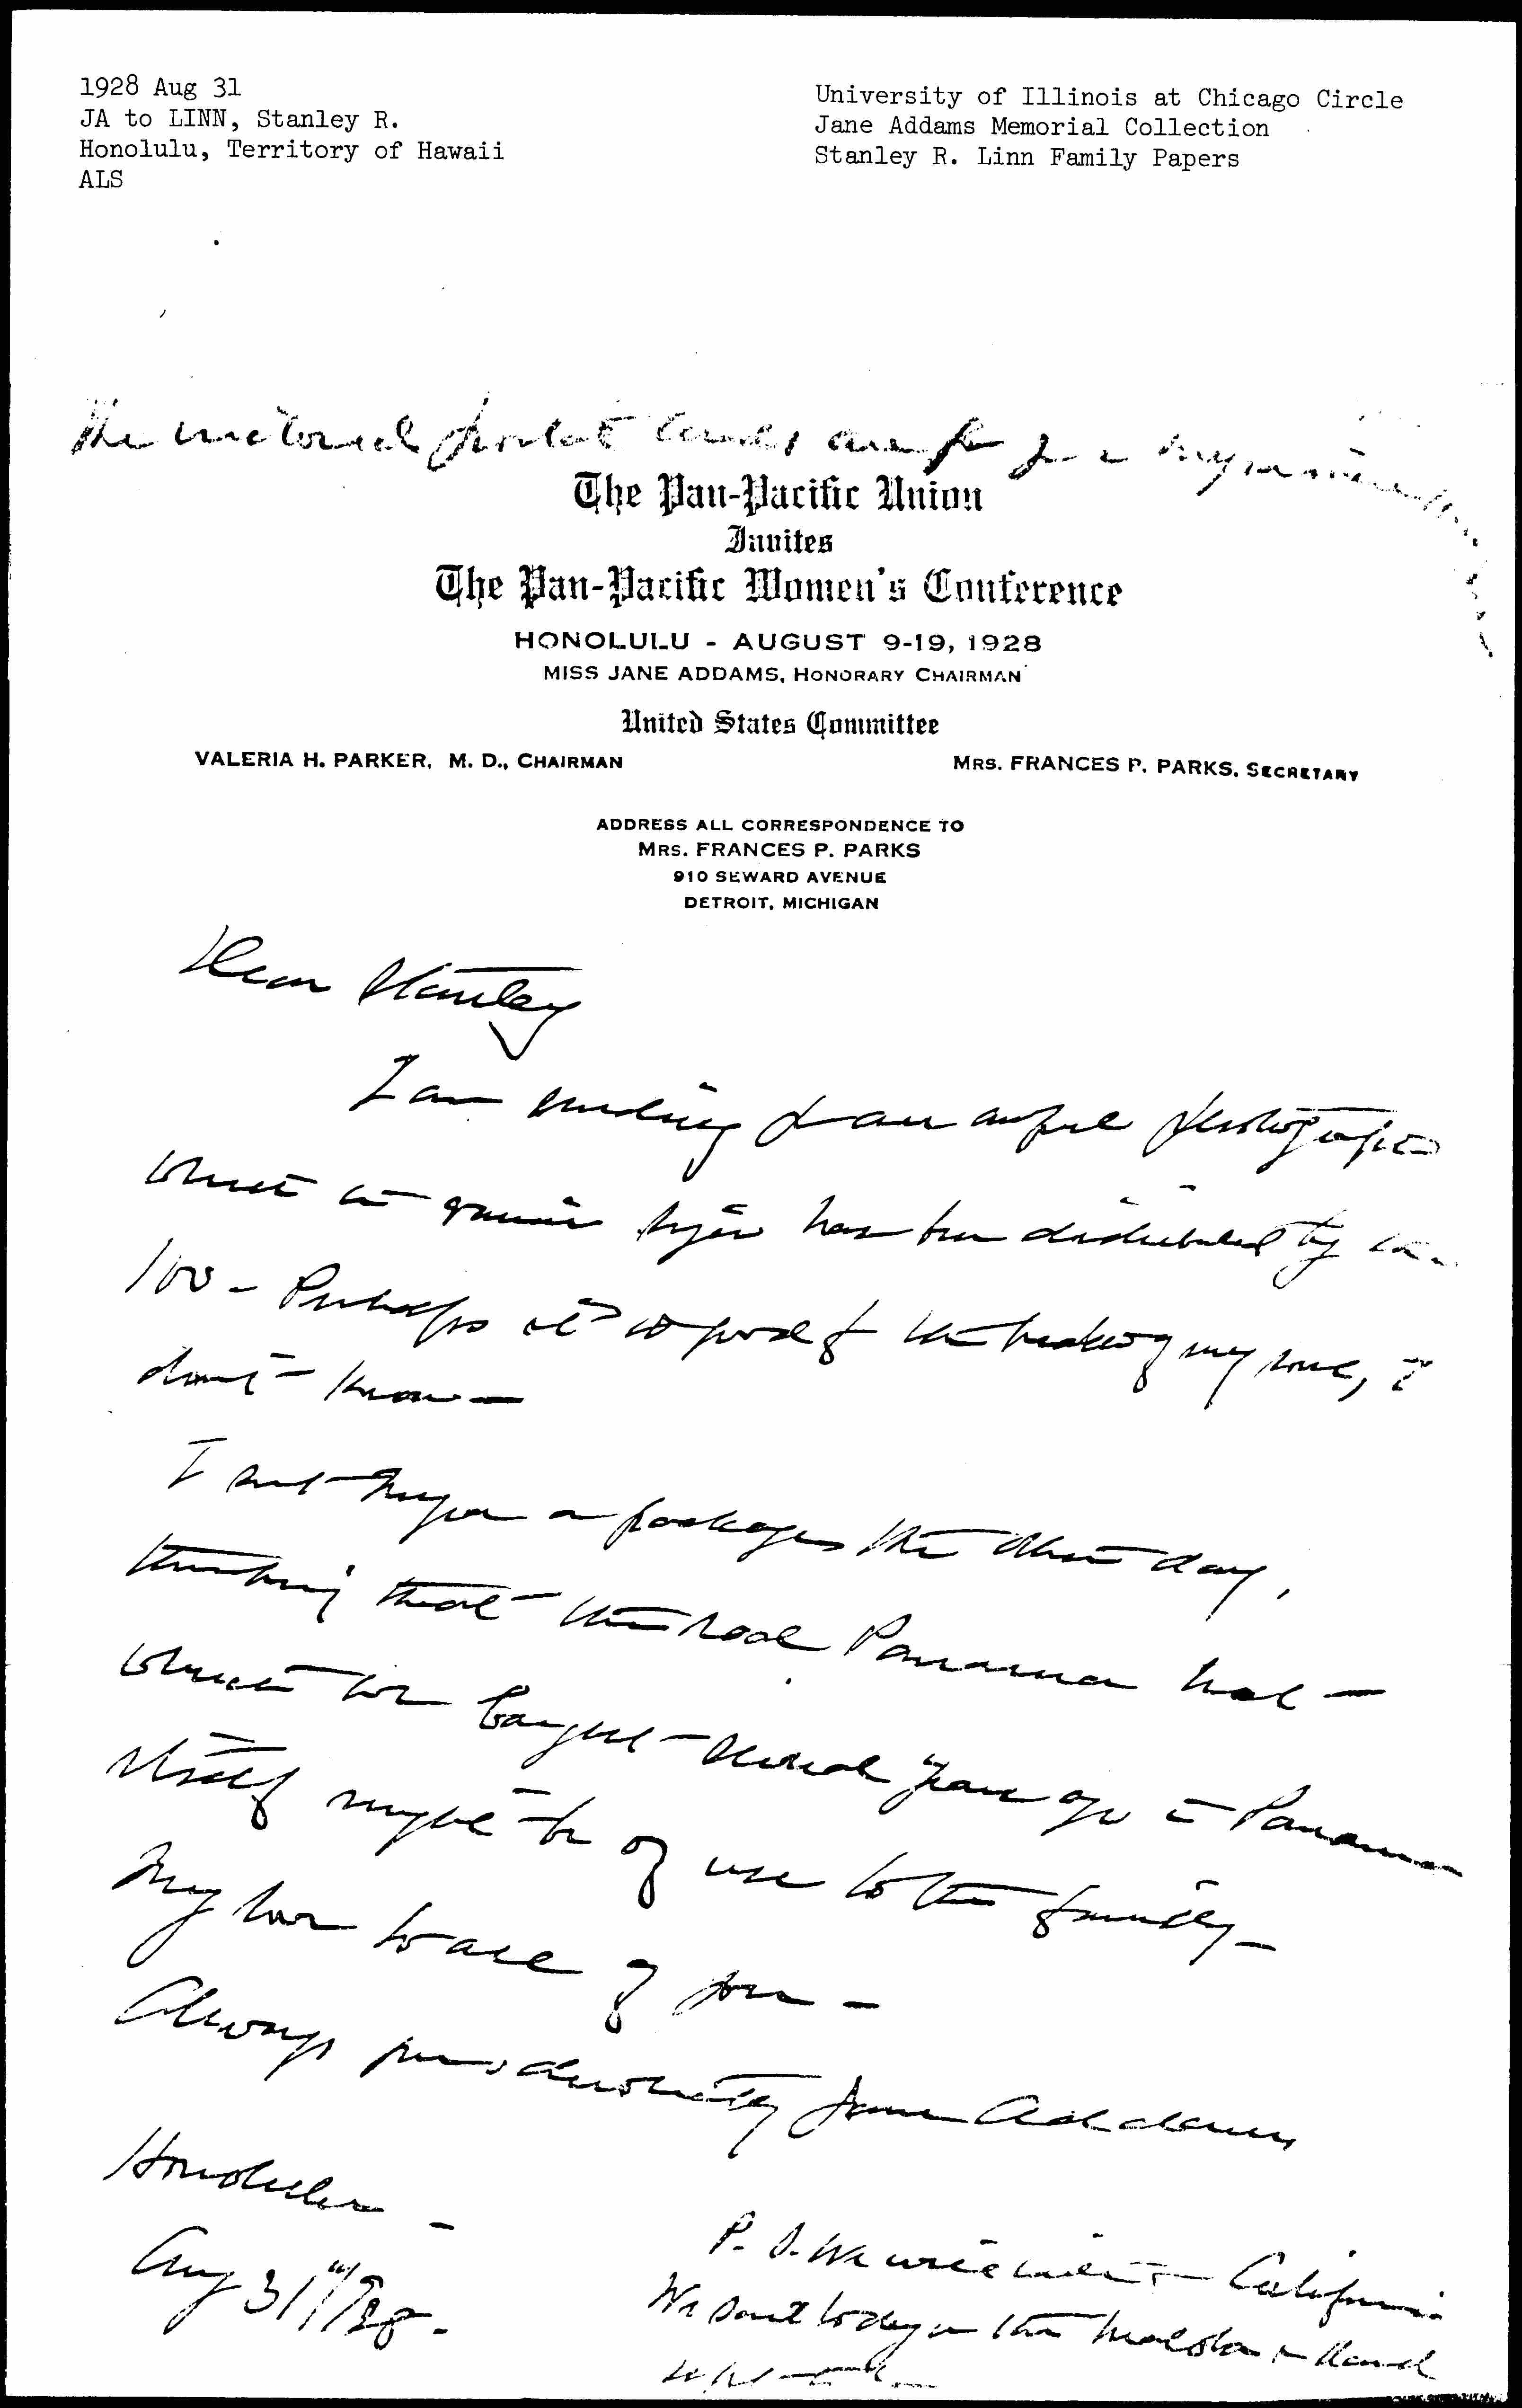 1928 Aug 31
JA to LINN, Stanley R.
Honolulu, Territory of Hawaii
ALS
University of Illinois at Chicago Circle
Jane Addams Memorial Collection
Stanley R. Linn Family Papers
The colored postal cards are for
The Pan-Pacific Union
Invites
The Pan-Pacific Women's Conference
HONOLULU - AUGUST 9-19, 1928
MISS JANE ADDAMS, HONORARY CHAIRMAN
United States Committee
VALERIA H. PARKER, M. D., CHAIRMAN
MRS. FRANCES P. PARKS, SECRETARY
ADDRESS ALL CORRESPONDENCE TO
MRS. FRANCES P. PARKS
910 SEWARD AVENUE
DETROIT, MICHIGAN
Dear Stanley
I am sending you an awful photograph
which in has been distributed by the
100 - Perhaps it is good for the of my soul, I
don't know -
I sent Myra a package the other day,
thinking that the real Panama hat -
which we bought several years ago in Panama
itself might be of use to the family -
My love to all of you -
Always yours devotedly Jane Addams
Honolulu -
Aug 31"/28.
P. S. We California
We sail today on the Malolo & land